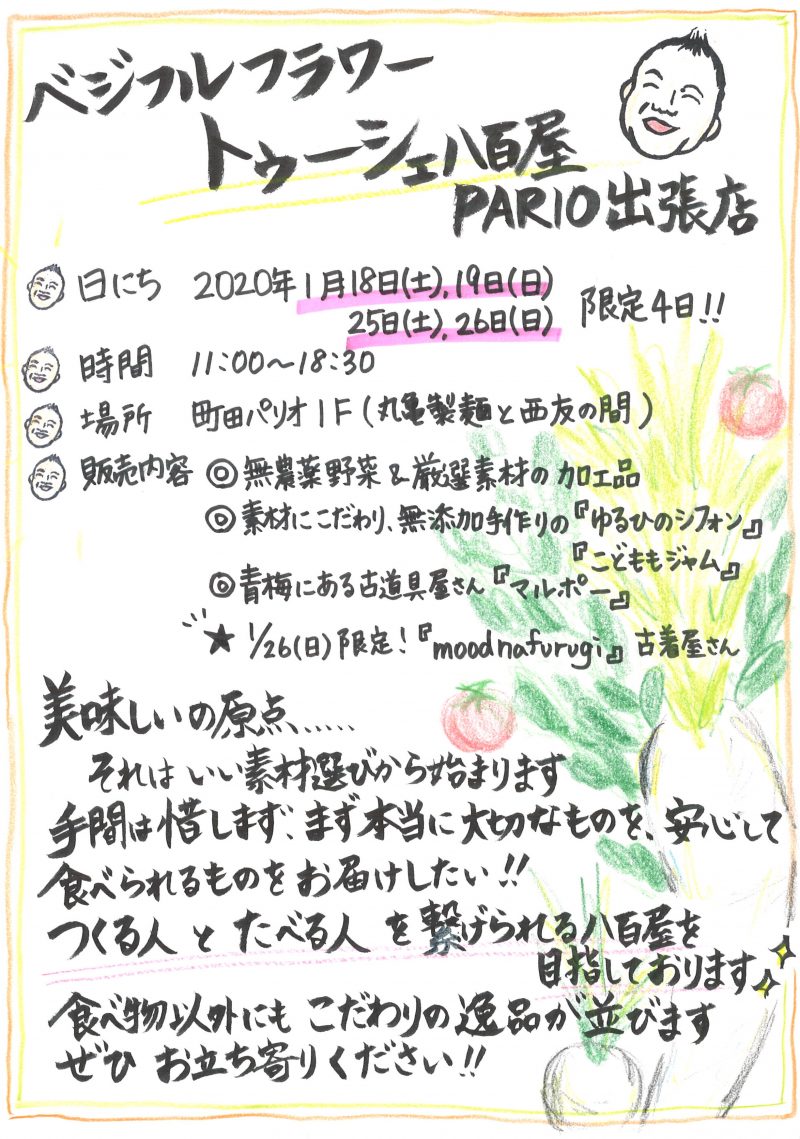 ベジフルフラワー
トゥーシェ八百屋
PARIO出張店
日にち 2020年1月18日(土),19日(日)
25日(土),26日(日) 限定4日!!
時間 11:00〜18:30
場所 町田パリオ1F(丸亀製麺と西友の間)
販売内容 ◎無農薬野菜&厳選素材の加工品
◎素材にこだわり、無添加手作りの『ゆるひのシフォン』
『こどももジャム』
◎青梅にある古道具屋さん『マルポー』
★1/26(日)限定!『moodnafurugi』古着屋さん
美味しいの原点......
それはいい素材選びから始まります
手間は惜しまず、まず本当に大切なものを、安心して
食べられるものをお届けしたい!!
つくる人とたべる人を繋げられる八百屋を
目指しております
食べ物以外にもこだわりの逸品が並びます
ぜひお立ち寄りください!!